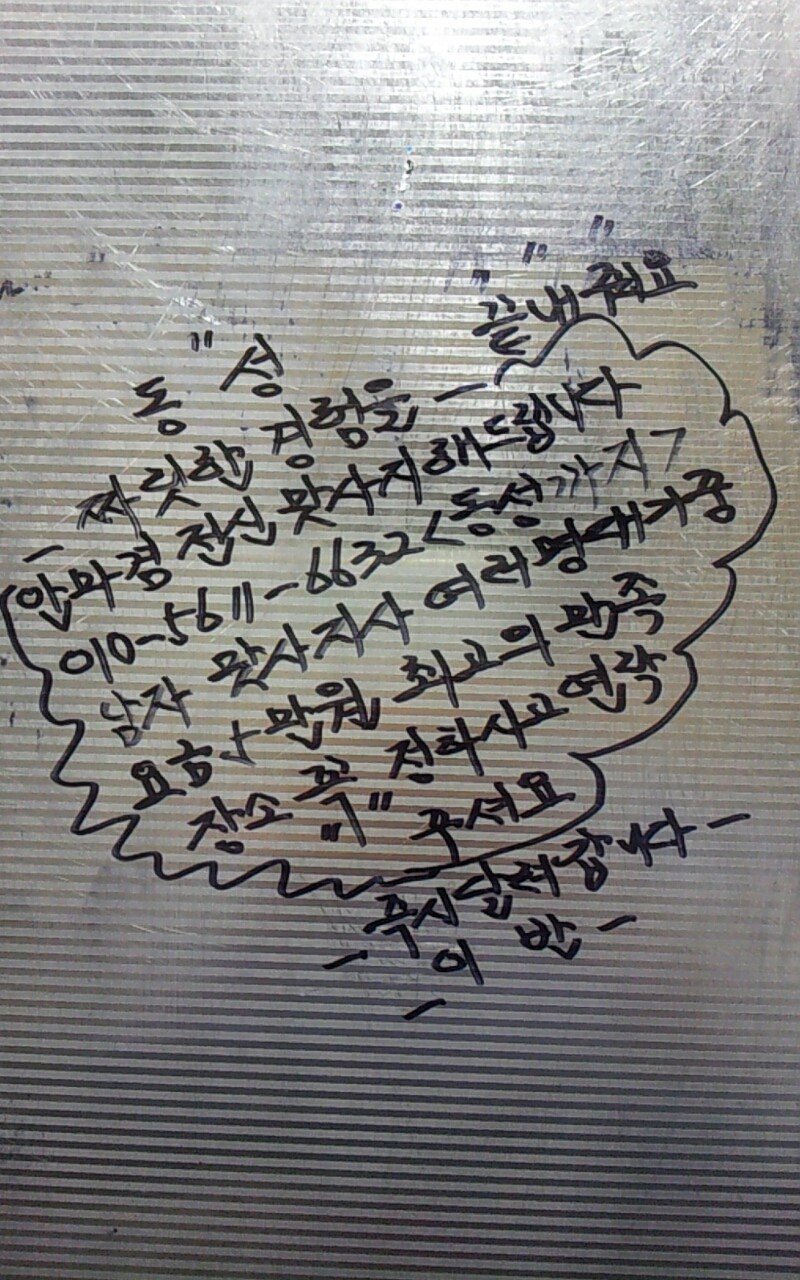 " " "
끝내줘요
동"성
짜릿한 경험을 -
- 안마겸 전신 맛사지해드립니다
010-5611-6632<동성까지>
남자 맛사지사 여러명대기중
요금 만원 최고의 만족
장소 꼭 정하시고 연락
"1" 주셔요
즉시달려갑니다 -
- 이 반 -
-